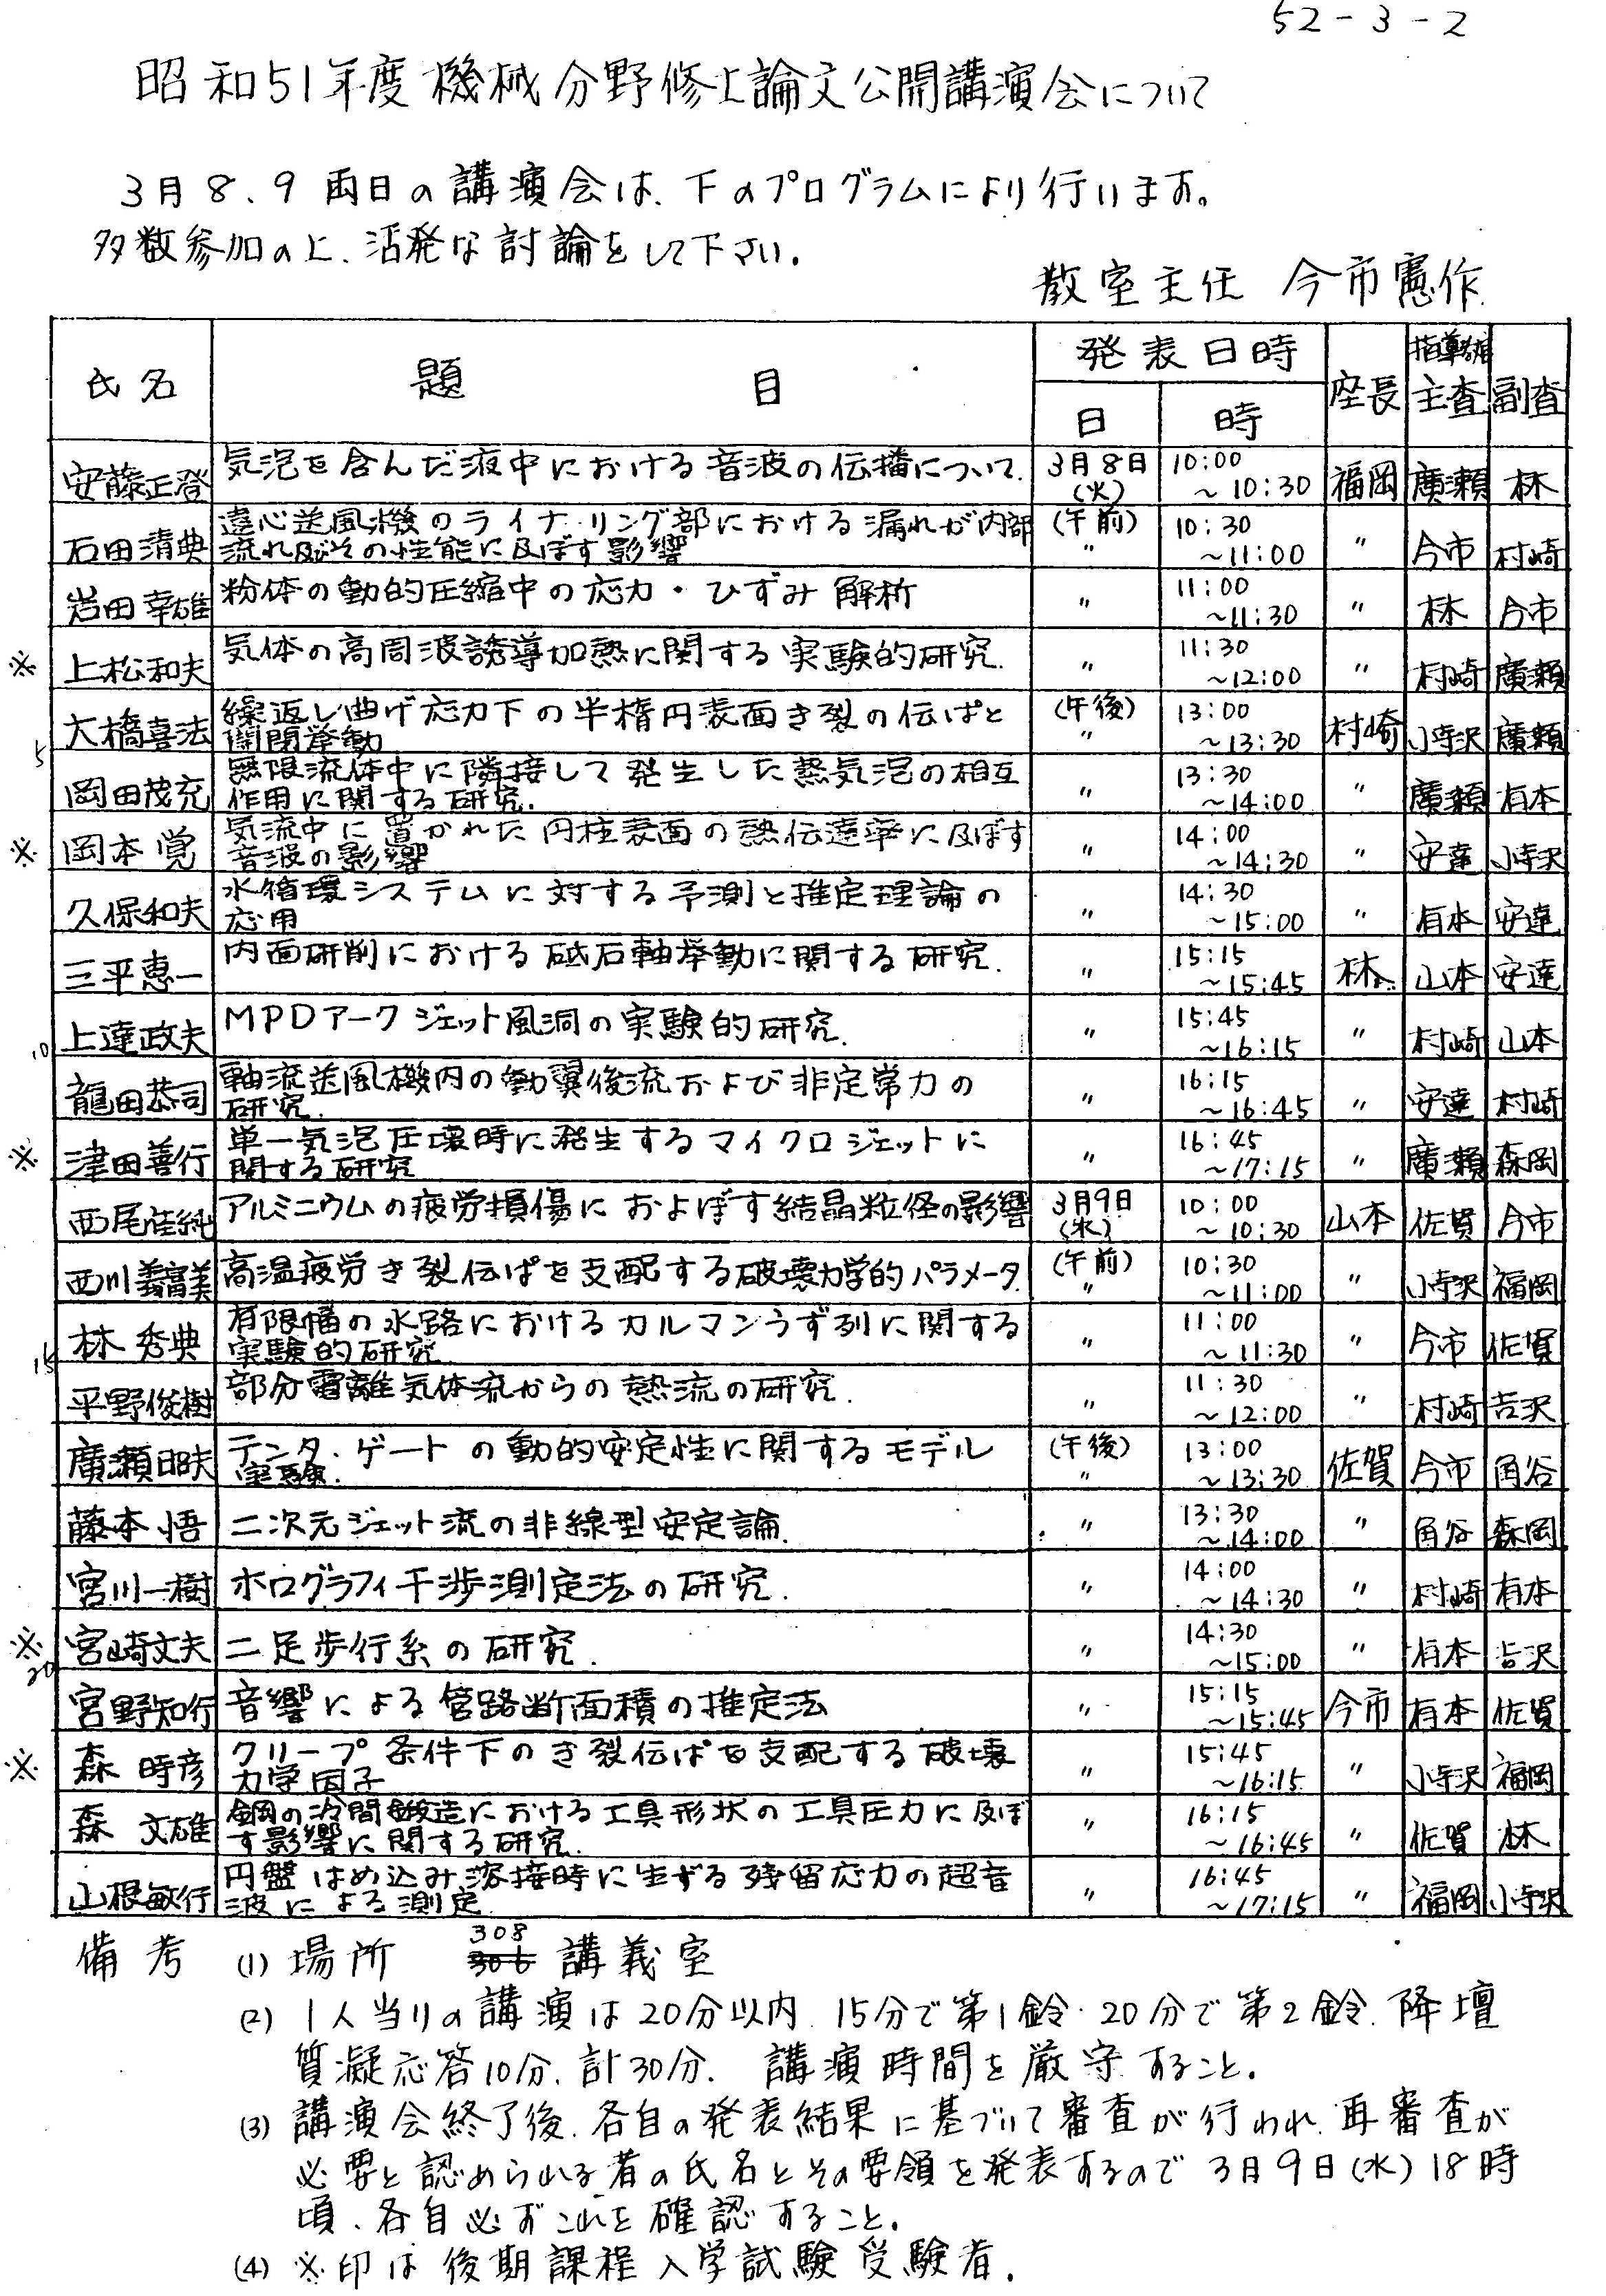 52-3-2
昭和51年度機械分野修士論文公開講演会について
3月8、9両日の講演会は、下のプログラムにより行います。
多数参加の上、活発な討論をして下さい。
教室主任 今市憲作
氏名 題 目 発表日時 座長 指導教官 主査 副査
日 時
安藤正登 気泡を含んだ液中における音波の伝播について 3月8日(火) 10:00~10:30 福岡 廣瀬 林
石田清典 遠心送風機のライナ・リング部における漏れが内部 (午前) 10:30
流れ及びその性能に及ぼす影響 〃 ~11:00 〃 今市 村崎
岩田幸雄 粉体の動的圧縮中の応力・ひずみ解析 〃 11:00~11:30 〃 林 今市
※ 上松和夫 気体の高周波誘導加熱に関する実験的研究. 〃 11:30~12:00 〃 村崎 廣瀬
5 大橋喜法 繰返し曲げ応力下の半楕円表面き裂の伝ぱと (午後) 13:00
開閉挙動 〃 ~13:30 村崎 小寺沢 廣瀬
岡田茂充 無限流体中に隣接して発生した蒸気泡の相互 13:30
作用に関する研究. 〃 ~14:00 〃 廣瀬 有本
※ 岡本覚 気流中に置かれた円柱表面の熱伝達率に及ぼす 14:00
音波の影響 〃 ~14:30 〃 安達 小寺沢
久保和夫 水循環システムに対する予測と推定理論の 14:30
応用 〃 ~15:00 〃 有本 安達
三平恵一 内面研削における砥石軸挙動に関する研究. 〃 15:15~15:45 林 山本 安達
10 上達政夫 MPDアークジェット風洞の実験的研究. 〃 15:45~16:15 〃 村崎 山本
龍田恭司 軸流送風機内の動翼後流および非定常力の 16:15
研究. 〃 ~16:45 〃 安達 村崎
※ 津田善行 単一気泡圧壊時に発生するマイクロジェットに 16:45
関する研究 〃 ~17:15 〃 廣瀬 森岡
西尾佳純 アルミニウムの疲労損傷におよぼす結晶粒径の影響 3月9日(水) 10:00~10:30 山本 佐賀 今市
西川義富美 高温疲労き裂伝ぱを支配する破壊力学的パラメータ. (午前) 〃 10:30~11:00 〃 小寺沢 福岡
15 林秀典 有限幅の水路におけるカルマンうず列に関する 11:00
実験的研究 〃 ~11:30 〃 今市 佐賀
平野俊樹 部分電離気体流からの熱流の研究. 〃 11:30~12:00 〃 村崎 吉沢
廣瀬昭夫 テンタ・ゲートの動的安定性に関するモデル (午後) 13:00
実験. 〃 ~13:30 佐賀 今市 角谷
藤本悟 二次元ジェット流の非線型安定論. 〃 13:30~14:00 〃 角谷 森岡
宮川一樹 ホログラフィ干渉測定法の研究. 〃 14:00~14:30 〃 村崎 有本
※ 20 宮崎文夫 二足歩行系の研究. 〃 14:30~15:00 〃 有本 吉沢
宮野知行 音響による管路断面積の推定法 〃 15:15~15:45 今市 有本 佐賀
※ 森時彦 クリープ条件下のき裂伝ぱを支配する破壊 15:45
力学因子 〃 ~16:15 〃 小寺沢 福岡
森文雄 鋼の冷間鍛造における工具形状の工具圧力に及ぼ 16:15
す影響に関する研究. 〃 ~16:45 〃 佐賀 林
山根敏行 円盤はめ込み溶接時に生ずる残留応力の超音 16:45
波による測定 〃 ~17:15 〃 福岡 小寺沢
備考 (1) 場所 308 306 講義室
(2) 1人当りの講演は20分以内. 15分で第1鈴. 20分で第2鈴. 降壇
質凝応答10分、計30分. 講演時間を厳守すること.
(3) 講演会終了後、各自の発表結果に基づいて審査が行われ、再審査が
必要と認められる者の氏名とその要領を発表するので 3月9日(水)18時
頃、各自必ずこれを確認すること.
(4) ※印は後期課程入学試験受験者.